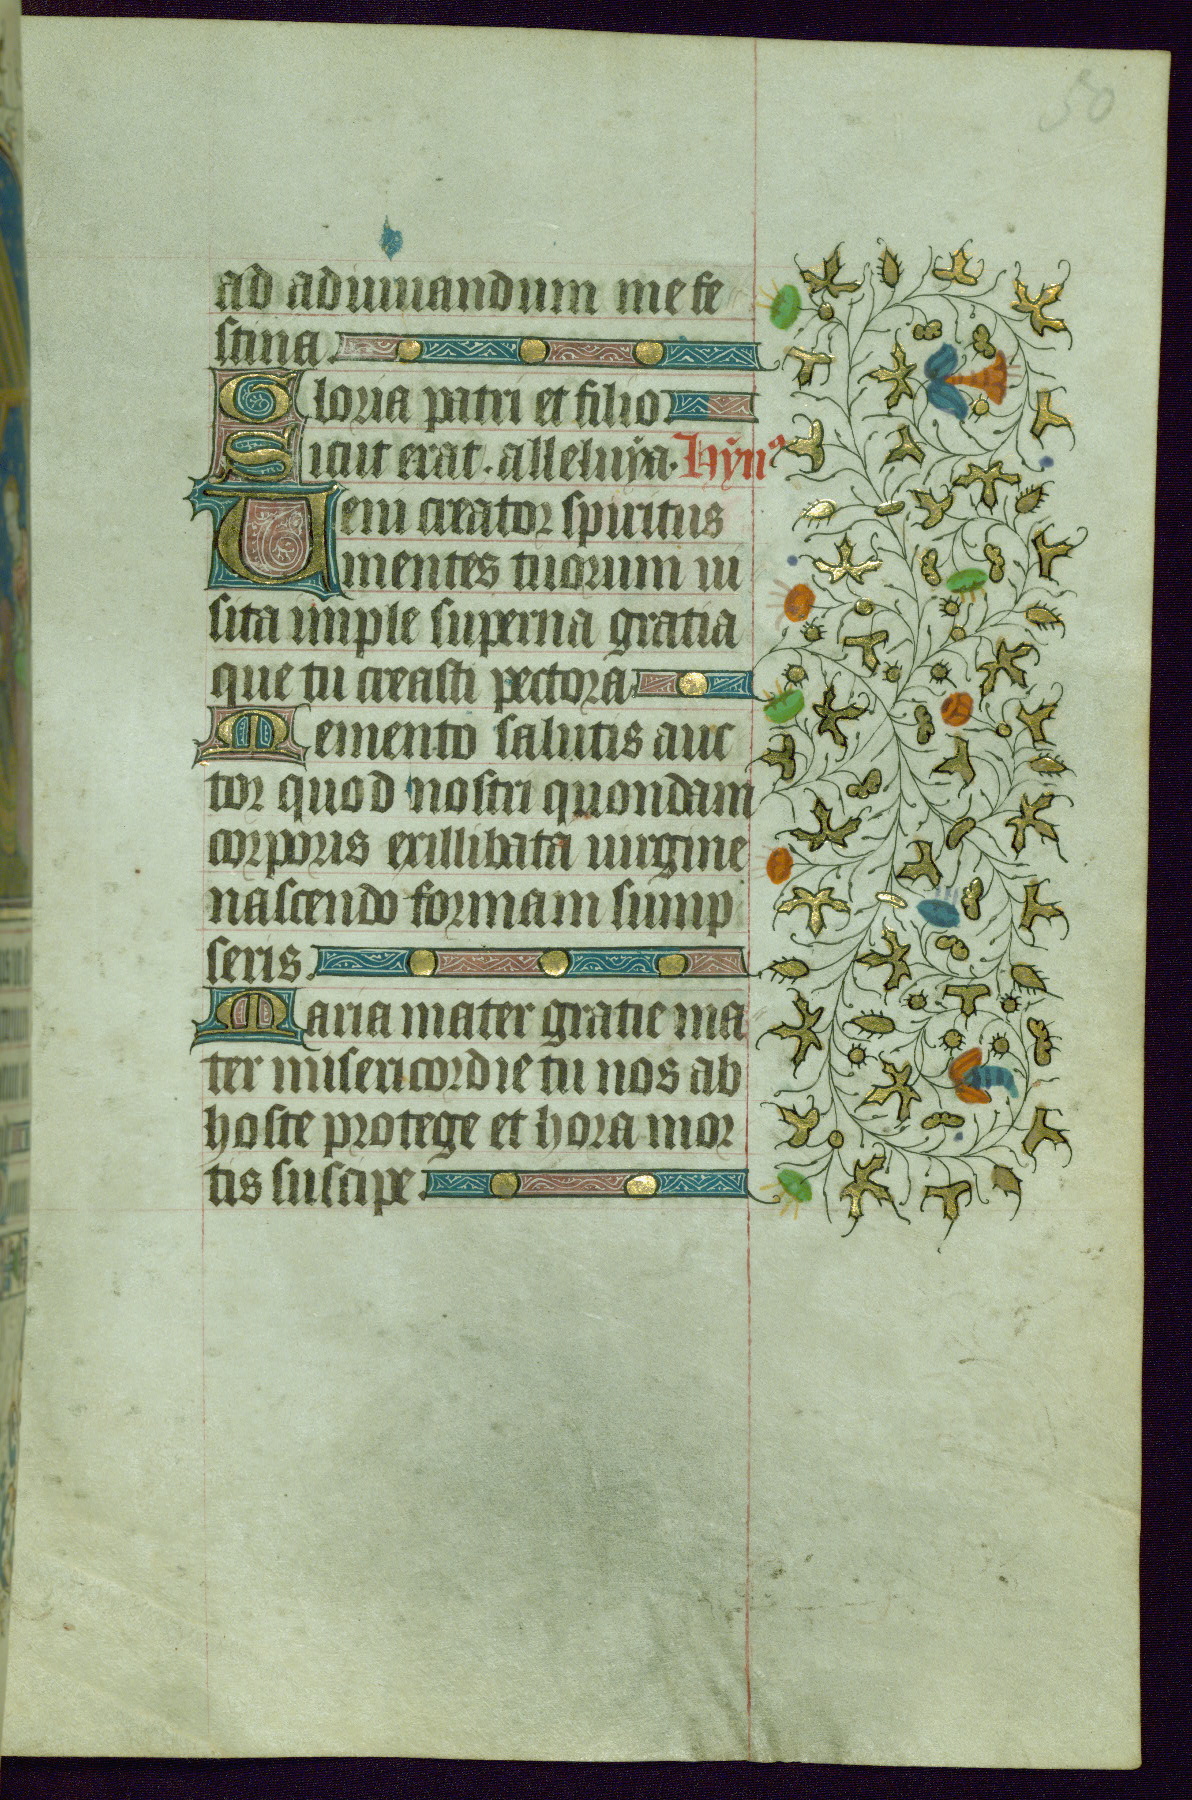 50
ad adiuuandum me fe
stina
Gloria patri et filio
Sicut erat. alleluya. Hyn̄
Veni creator spiritus
mentes tuorum ui
sita imple superna gratia
que tu creasti pectora
Memento salutis auc
tor quod nostri quondam
corporis exillibata uirgine
nascendo formam sump
seris.
Maria mater gratie ma
ter misericordie tu nos ab
hoste protege et hora mor
tis suscipe.